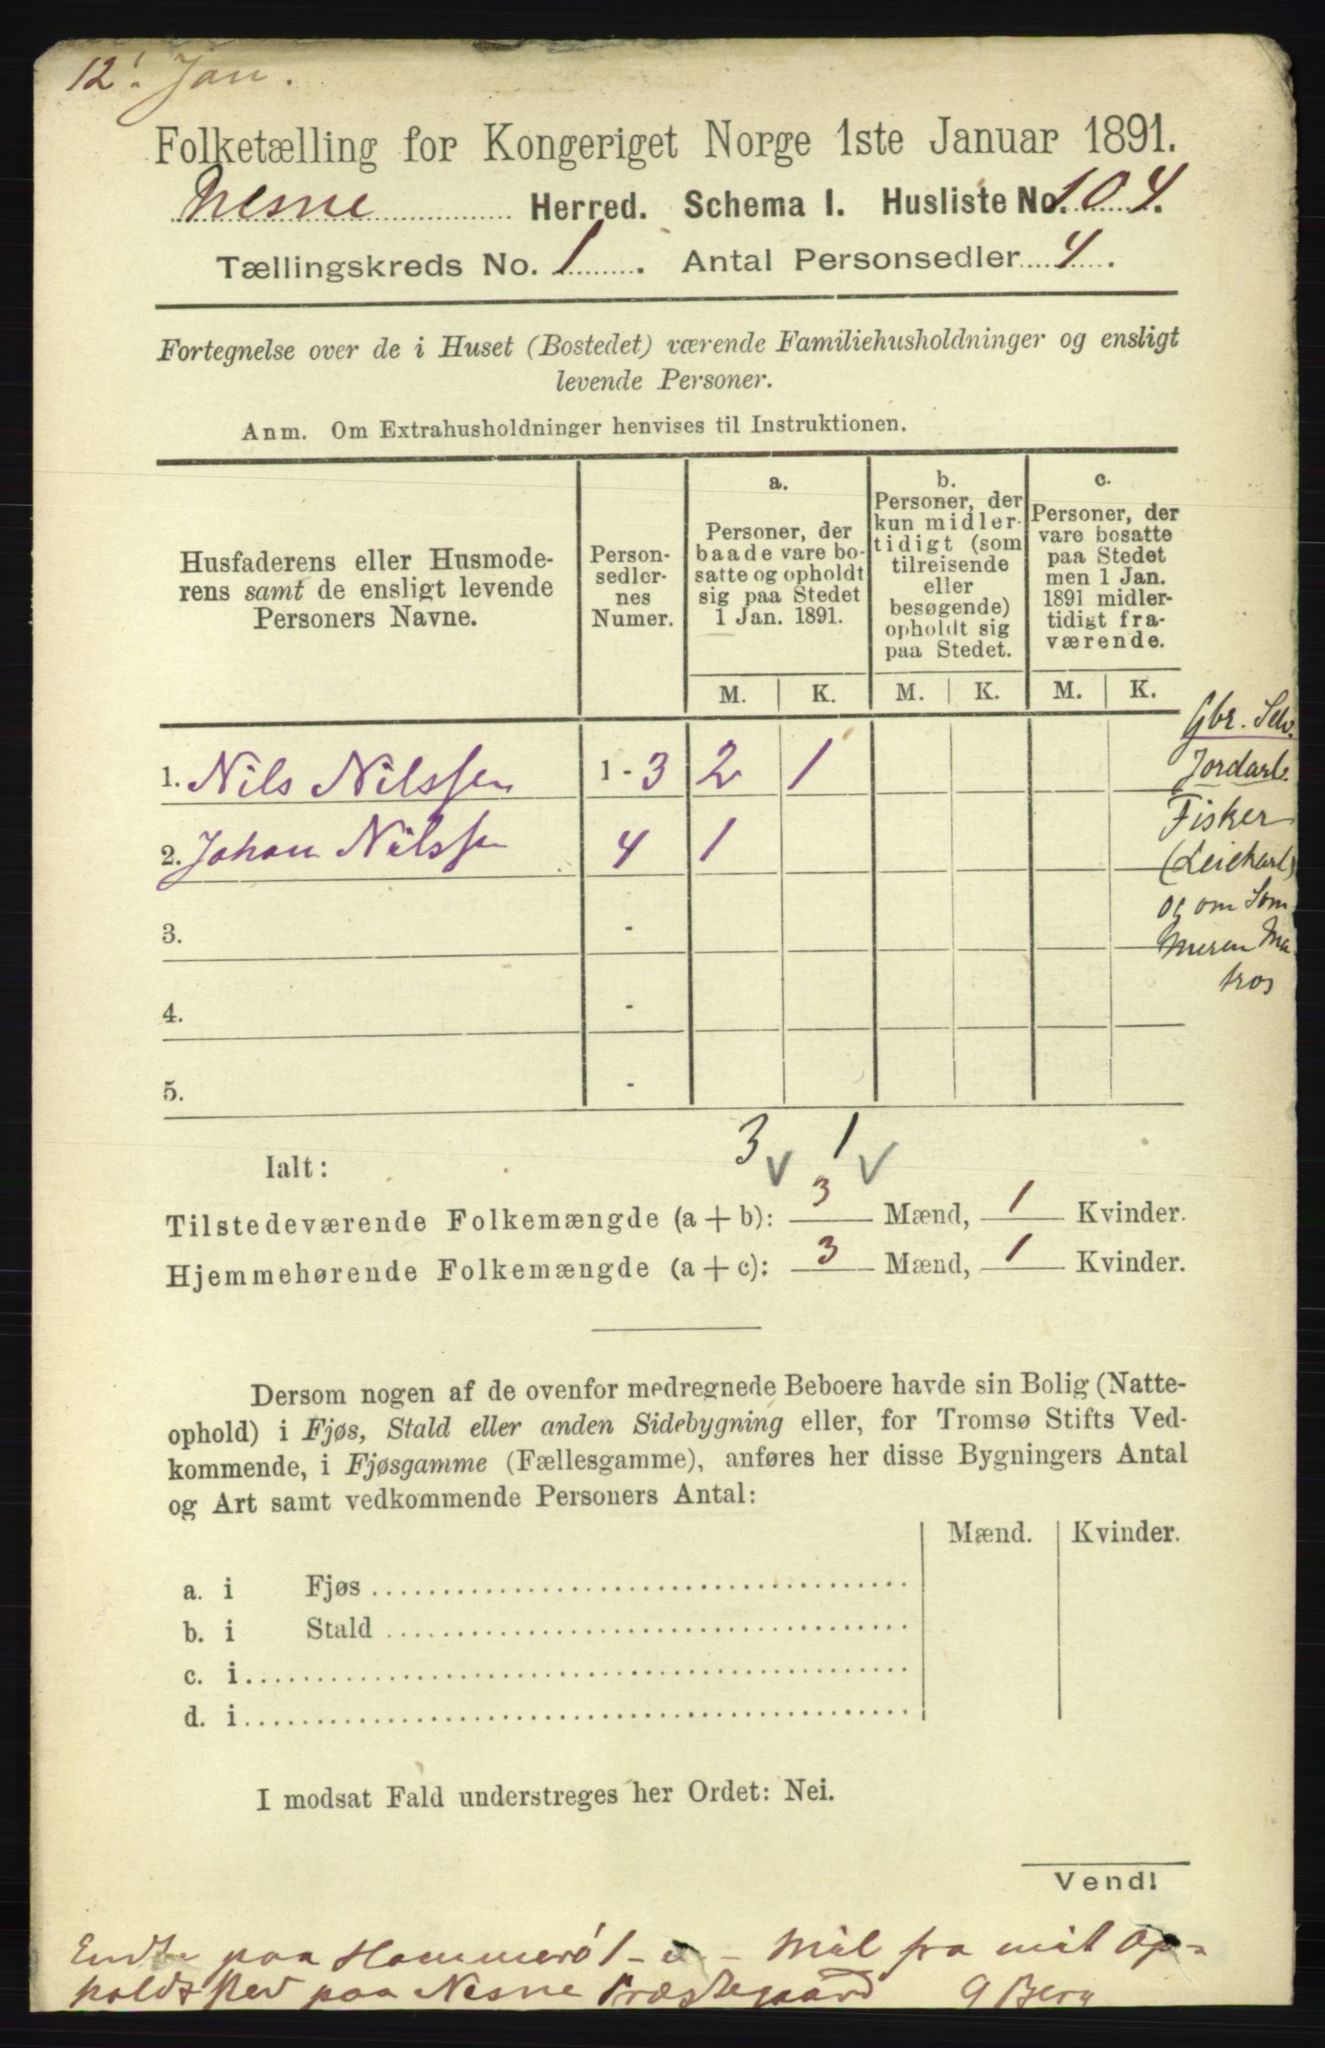 12' Jan.
Folketælling for Kongeriget Norge 1ste Januar 1891.
Nesne Herred. Schema I. Husliste No. 104.
Tællingskreds No. 1. Antal Personsedler 4.
Fortegnelse over de i Huset (Bostedet) værende Familiehusholdninger og ensligt
levende Personer.
Anm. Om Extrahusholdninger henvises til Instruktionen.
Husfaderens eller Husmode-
rens samt de ensligt levende
Personers Navne.
Person-
sedler-
nes
Numer.
a.
Personer, der
baade vare bo-
satte og opholdt
sig paa Stedet
1 Jan. 1891.
b.
Personer, der
kun midler-
tidigt (som
tilreisende
eller
besøgende)
opholdt sig
paa Stedet.
c.
Personer, der
vare bosatte
paa Stedet
men 1 Jan.
1891 midler-
tidigt fra-
værende.
M. K. M. K. M. K.
1. Nils Nilssen 1 - 3 2 1
2. Johan Nilssen 4 1
3. -
4. -
5. -
Gbr. Selv.
Jordarb.
Fisker
og om Som
meren Ma
tros
3 1
Ialt:
Tilstedeværende Folkemængde (a + b): 3 Mænd, 1 Kvinder.
Hjemmehørende Folkemængde (a + c): 3 Mænd, 1 Kvinder.
Dersom nogen af de ovenfor medregnede Beboere havde sin Bolig (Natte-
ophold) i Fjøs, Stald eller anden Sidebygning eller, for Tromsø Stifts Ved-
kommende, i Fjøsgamme (Fællesgamme), anføres her disse Bygningers Antal
og Art samt vedkommende Personers Antal:
Mænd. Kvinder.
a. i Fjøs
b. i Stald
c. i
d. i
I modsat Fald understreges her Ordet: Nei.
Vend!
Endte paa Hammerø 1 Mil fra mit Op-
holdssted paa Nesne Præstegaard G Berg